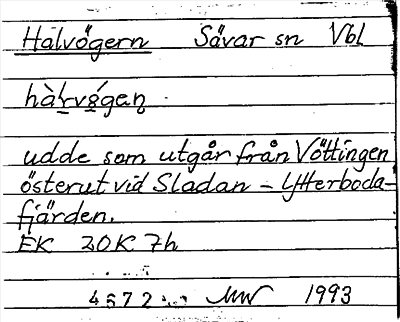 Halvögern Sävar sn Vbl
hàḷvǿgeṇ
udde som utgår från Vöttingen
österut vid Sladan – Ytterboda-
fjärden.
EK 20K 7h
4672 MW 1993